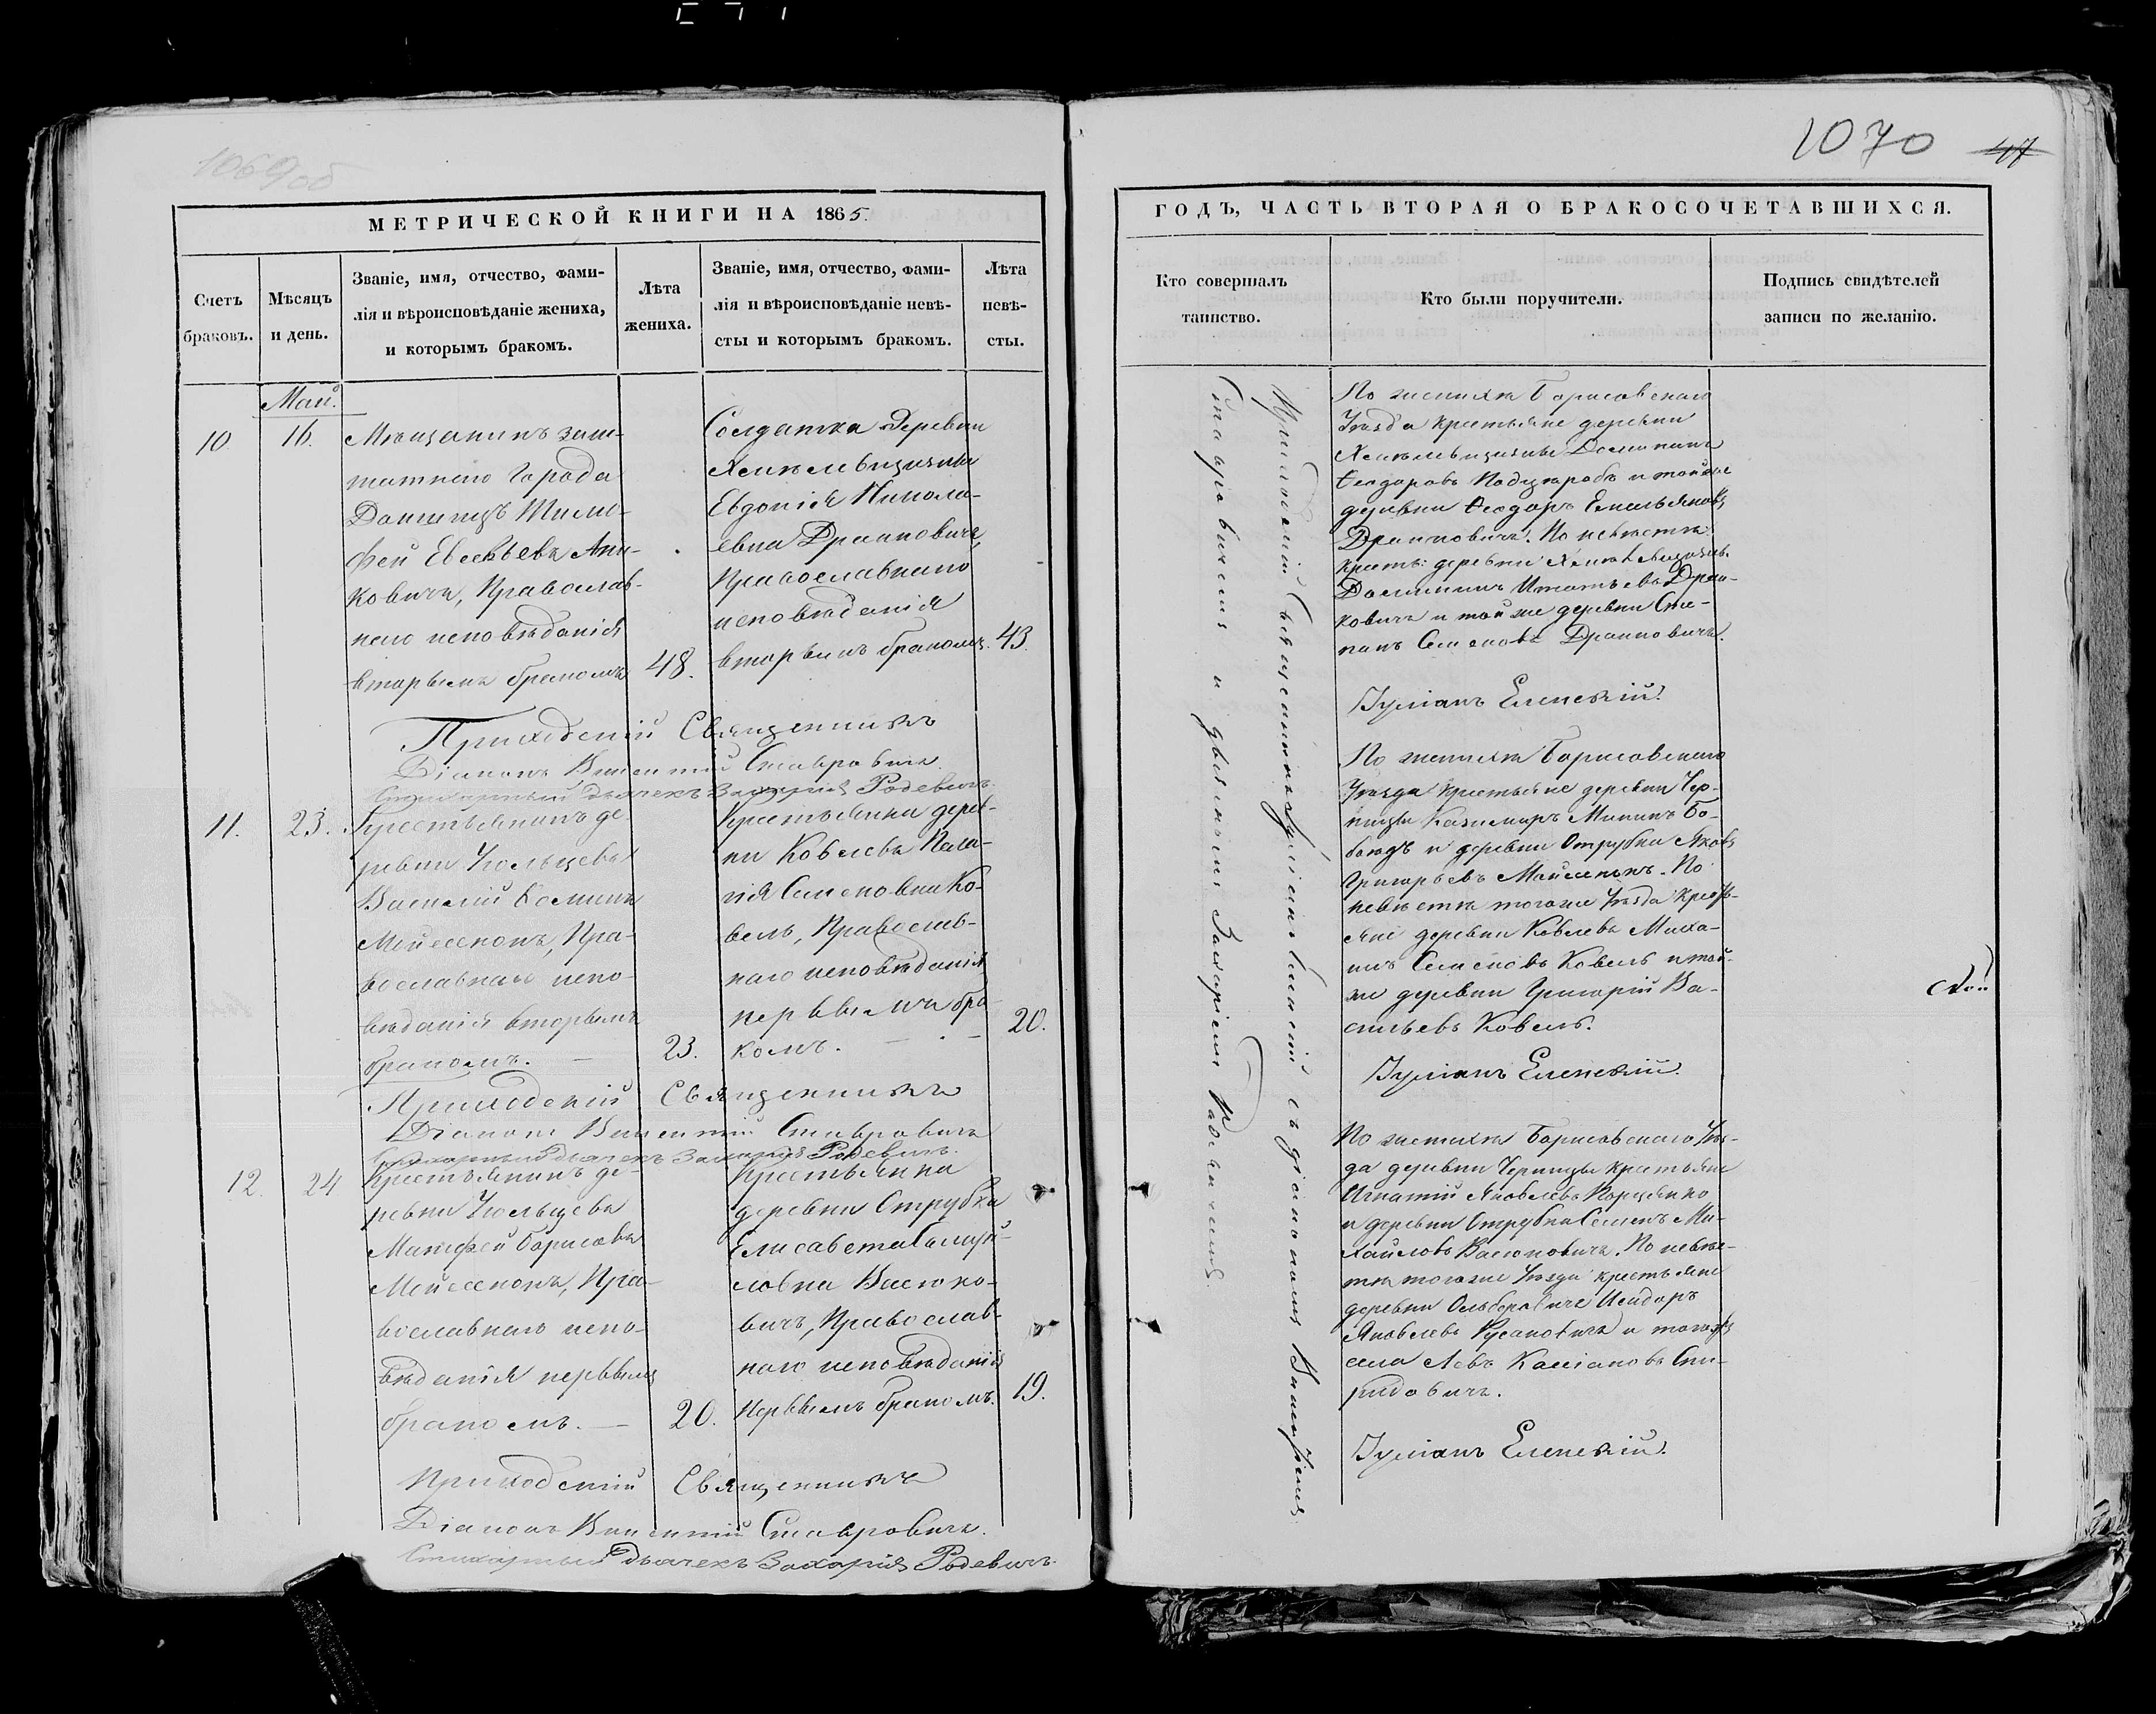 1069об
МЕТРИЧЕСКОЙ КНИГИ НА 1865.
Счетъ
браковъ.
Мѣсяцъ
и день.
Званіе, имя, отчество, фами-
лія и вѣроисповѣданіе жениха,
и которымъ бракомъ.
Лѣта
жениха.
Званіе, имя, отчество, фами-
лія и вѣроисповѣданіе невѣ-
сты и которымъ бракомъ.
Лѣта
невѣ-
сты.
Май.
10
16.
Мѣщанинъ заш-
татнаго города
Тимо-
фей Евсеѣевъ
Православ-
наго исповѣданія
вторымъ бракомъ
48.
Солдатка деревни
Евдокія Никола-
евна
Православнаго
исповѣданія
вторымъ бракомъ.
43.
Приходскій Священникъ
Діаконъ Викентій Ставровичъ.
Стихарный дьячекъ Захарія Родевичъ.
11.
23.
Крестьянинъ де-
ревни Угольцевъ
Василій
Пра-
вославнаго испо-
вѣданія вторымъ
бракомъ. —
23.
Крестьянка дерев-
ни Ковелевъ Пела-
гія Семеновна Ко-
вель, Православ-
наго исповѣданія
первымъ бра-
комъ. —
20.
Приходскій Священникъ
Діаконъ Викентій Ставровичъ
Стихарный дьячекъ Захарія Родевичъ.
12.
24
Крестьянинъ де-
ревни Угольцевъ
Матфей Борисовъ
Пра-
вославнаго испо-
вѣданія первымъ
бракомъ. —
20.
Крестьянка
деревни Отрубка
Елисавета Самуй-
ловна Васюко-
вичъ, Православ-
наго исповѣданія
первымъ бракомъ.
19.
Приходскій Священникъ
Діаконъ Викентій Ставровичъ.
Стихарный дьячекъ Захарія Родевичъ.
1070
47
ГОДЪ, ЧАСТЬ ВТОРАЯ О БРАКОСОЧЕТАВШИХСЯ.
Кто совершалъ
таинство.
Кто были поручители.
Подпись свидѣтелей
записи по желанію.
Приходскій Священникъ Іуліанъ Еленскій съ діакономъ Викентіемъ
Ставровичемъ и дьячкомъ Захаріемъ Родевичемъ.
По женихѣ Борисовскаго
Уѣзда крестьяне деревни
Ѳеодоровъ и той же
деревни Ѳеодоръ Емельяновъ
По невѣстѣ
крест: деревни
Игнатьевъ
и той же деревни Сте-
панъ Семеновъ
Іуліанъ Еленскій.
По женихѣ Борисовскаго
Уѣзда крестьяне деревни Чер-
ницы Казимиръ
и деревни Отрубка Яковъ
Григорьевъ По
невѣстѣ тогоже Уѣзда кресть-
яне деревни Ковелевъ Миха-
илъ Семеновъ Ковель и той-
же деревни Григорій Ва-
сильевъ Ковель.
Іуліанъ Еленскій.
По женихѣ Борисовскаго Уѣз-
да деревни Черницы крестьяне
Игнатій Яковлевъ
и деревни Отрубка Семенъ Ми-
хайловъ Васюковичъ. По невѣс-
тѣ тогоже Уѣзда крестьяне
деревни Исидоръ
Яковлевъ и тогожъ
села Левъ Кассіановъ Спи-
ридовичъ.
Іуліанъ Еленскій.